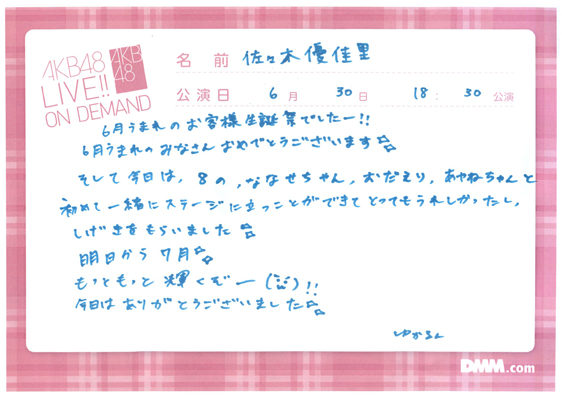 AKB48
LIVE!!
ON DEMAND
AKB
48
名 前 佐々木優佳里
公演日 6月 30日 18:30 公演
6月うまれのお客様生誕祭でしたー!!
6月うまれのみなさんおめでとうございます
そして今日は、8の、ななせちゃん、おだえり、あやねちゃんと
初めて一緒にステージに立つことができてとってもうれしかったし、
しげきをもらいました
明日から7月
もっともっと輝くぞー(¨)!!
今日はありがとうございました
ゆかるん
DMM.com